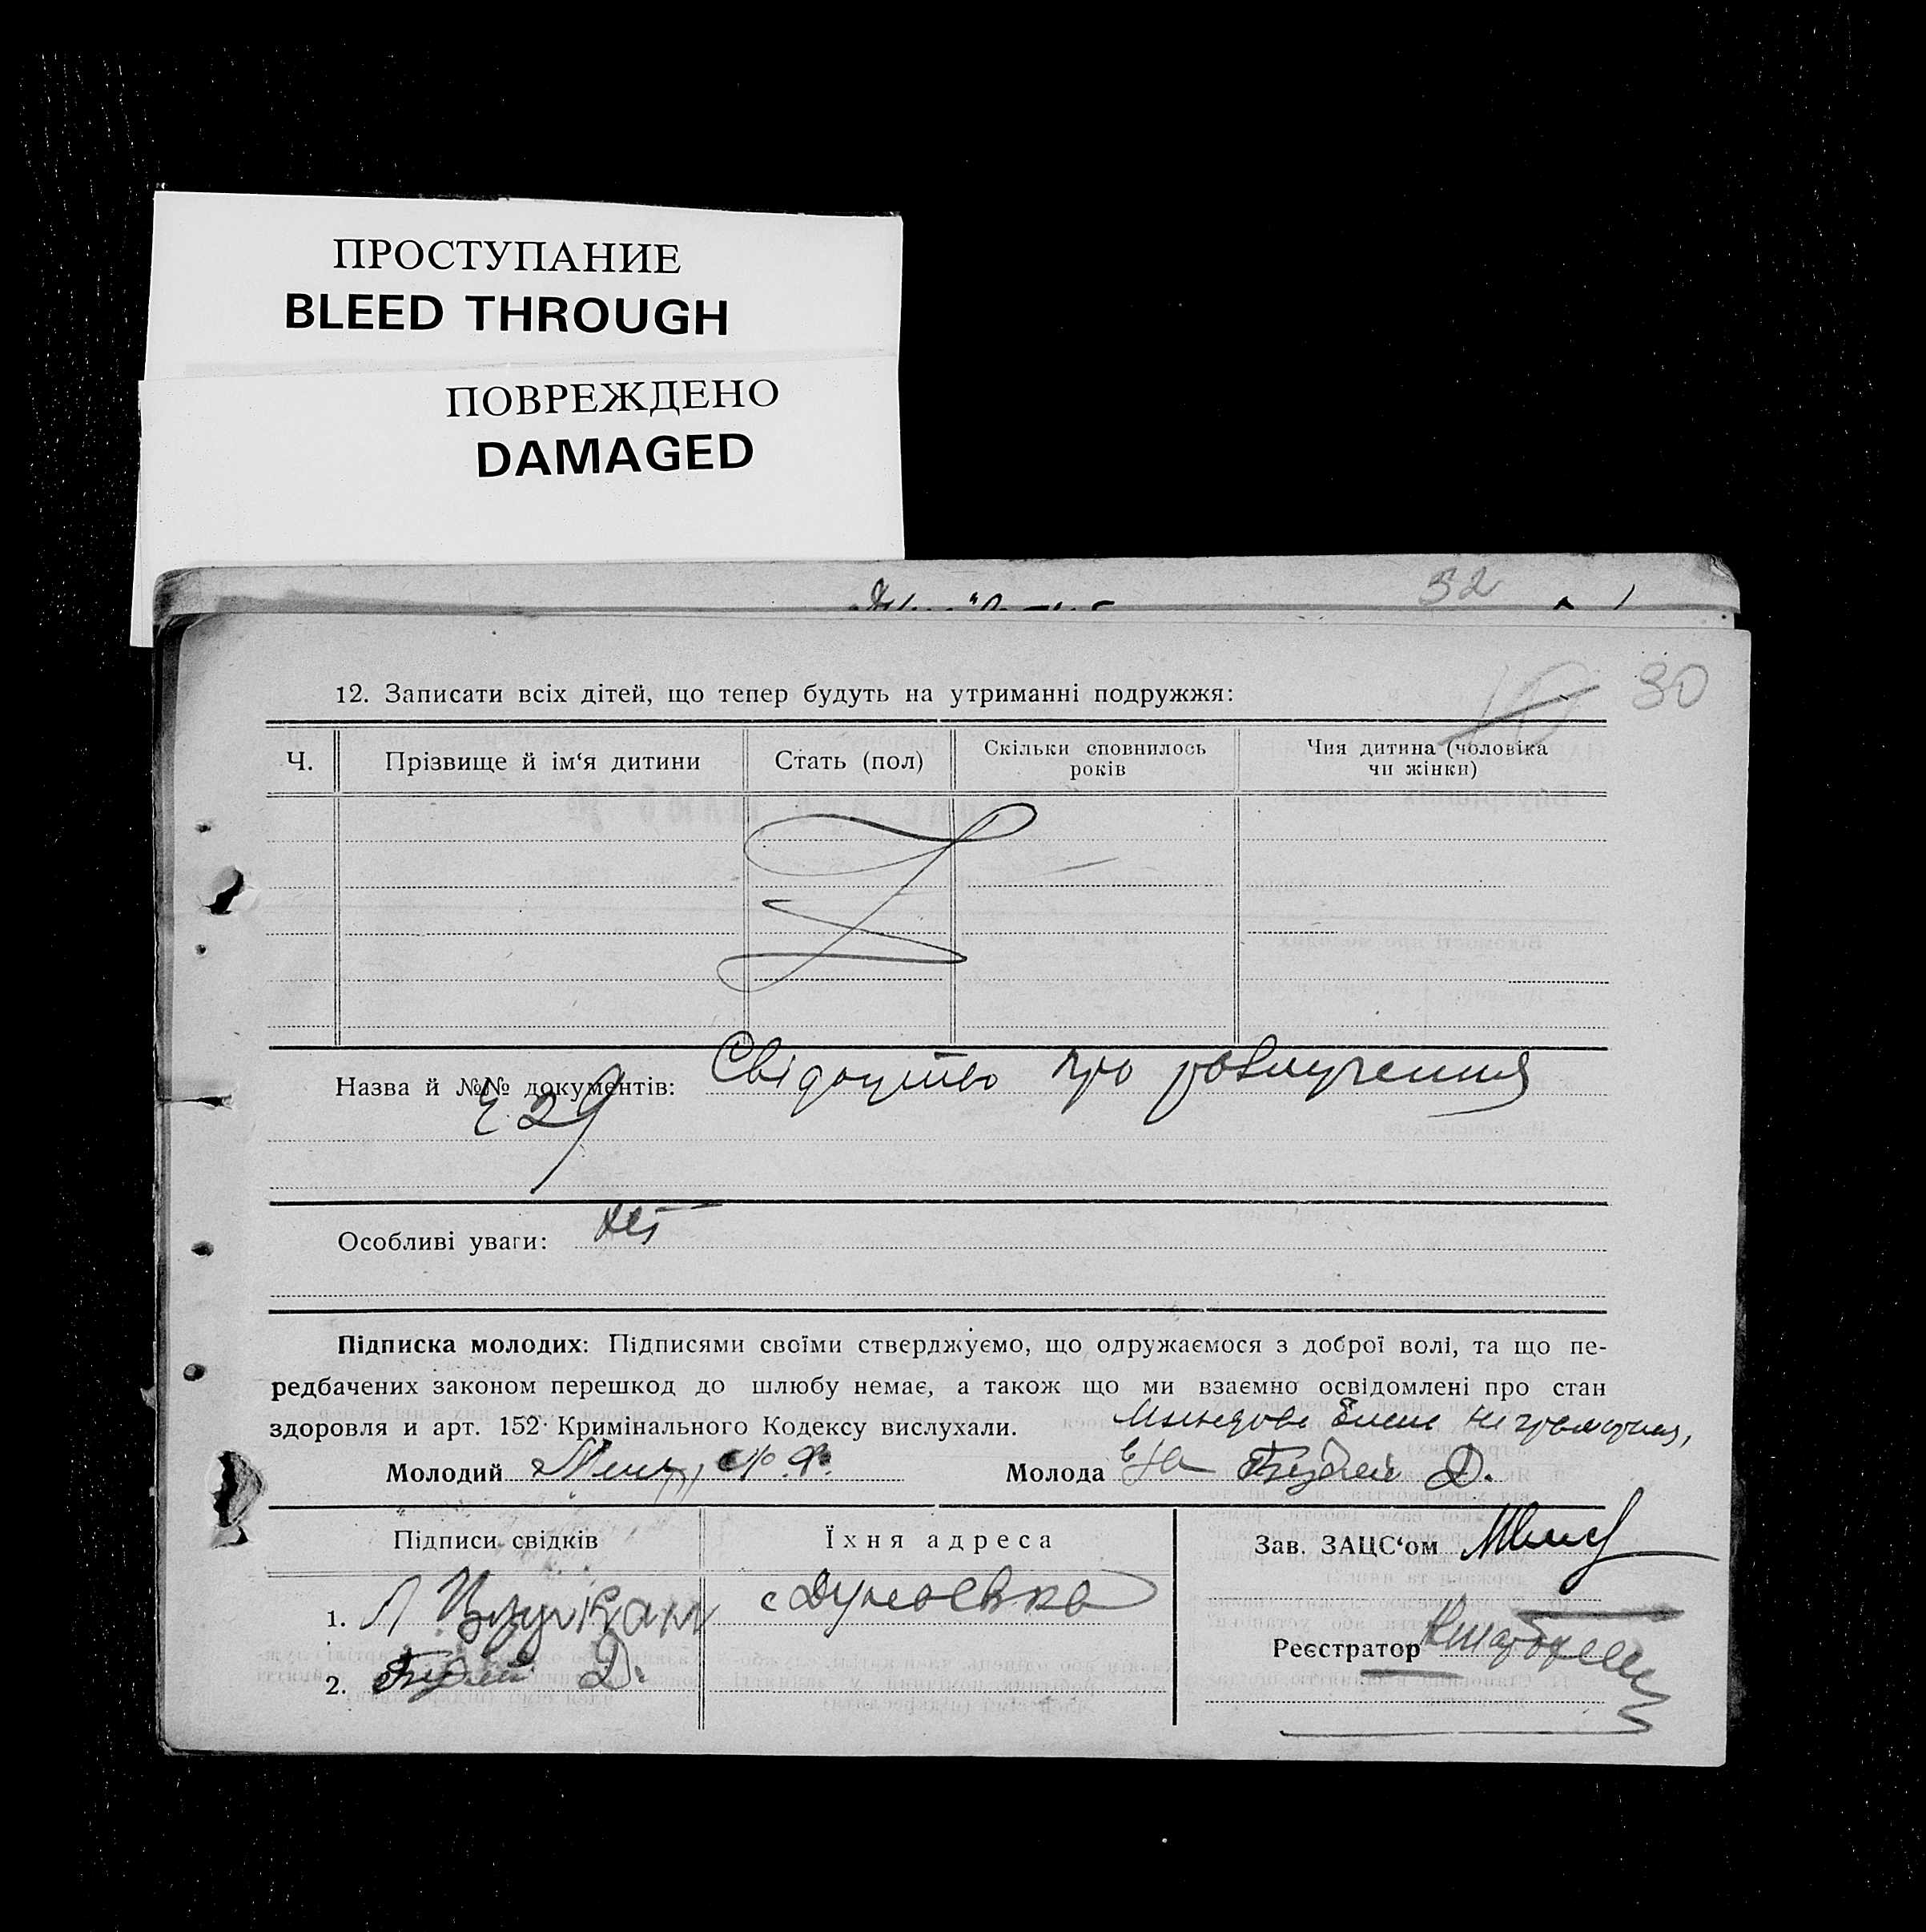 ПРОСТУПАНИЕ
BLEED THROUGH
ПОВРЕЖДЕНО
DAMAGED
32
30
12. Записати всіх дітей, що тепер будуть на утриманні подружжя:
Ч. Прізвище й ім‘я дитини Стать (пол) Скільки сповнилось років Чия дитина (чоловіка чи жінки)
Назва й №№ документів: Свідоцтво про розлучення
ч 29
Особливі уваги: Ні
Підписка молодих: Підписями своїми стверджуємо, що одружаємося з доброї волі, та що пе-
редбачених законом перешкод до шлюбу немає, а також що ми взаємно освідомлені про стан
здоровля и арт. 152 Кримінального Кодексу вислухали.
Молодий Молода Д.
Підписи свідків Їхня адреса Зав. ЗАЦС‘ом
1.
Реєстратор
2. Д.